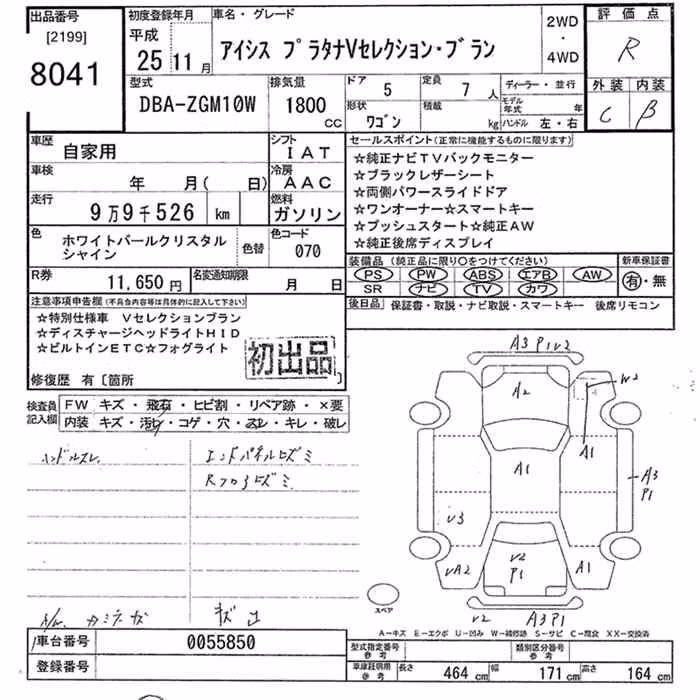 出品番号
[2199]
8041
初度登録年月
平成
25 11月
車名・グレード
アイシス プラタナVセレクション・ブラン
2WD
・
4WD
評価点
R
型式
DBA-ZGM10W
排気量
1800
CC
ドア
5
定員
7 人
形状
ワゴン
積載
kg
ディーラー・並行
モデル年式 年
ハンドル 左・右
外装 内装
C B
車歴
自家用
シフト
IAT
車検
年 月( 日)
冷房
AAC
走行
9万9千526 km
燃料
ガソリン
色
ホワイトパールクリスタル
シャイン
色替
色コード
070
R券
11,650円
名変通知期限
月 日
セールスポイント(正常に機能するものに限ります)
☆純正ナビTVバックモニター
☆ブラックレザーシート
☆両側パワースライドドア
☆ワンオーナー☆スマートキー
☆プッシュスタート☆純正AW
☆純正後席ディスプレイ
装備品(純正品に限り○をつけてください)
PS PW ABS エアB AW
SR ナビ TV カワ
新車保証書
有・無
後日品 保証書・取説・ナビ取説・スマートキー 後席リモコン
注意事項申告欄(不具合内容等は具体的に記入して下さい)
☆特別仕様車 Vセレクションブラン
☆ディスチャージヘッドライトHID
☆ビルトインETC☆フォグライト
初出品
修復歴 有〔箇所
検査員
記入欄
FW キズ・飛石・ヒビ割・リペア跡・×要
内装 キズ・汚れ・コゲ・穴・スレ・キレ・破レ
ハンドルスレ
エンドパネルヒズミ
Rフロアヒズミ
A3 P1 U2
A2
W2
A1
A1
A3
P1
U3
U2
P1
UA2
A1
U2
A3P1
スペア
A－キズ E－エクボ U－凹み W－補修跡 S－サビ C－腐食 XX－交換済
車台番号
0055850
登録番号
型式指定番号
参考
類別区分番号
参考
車庫証明用
参考
長さ 464 cm 幅 171 cm 高さ 164 cm